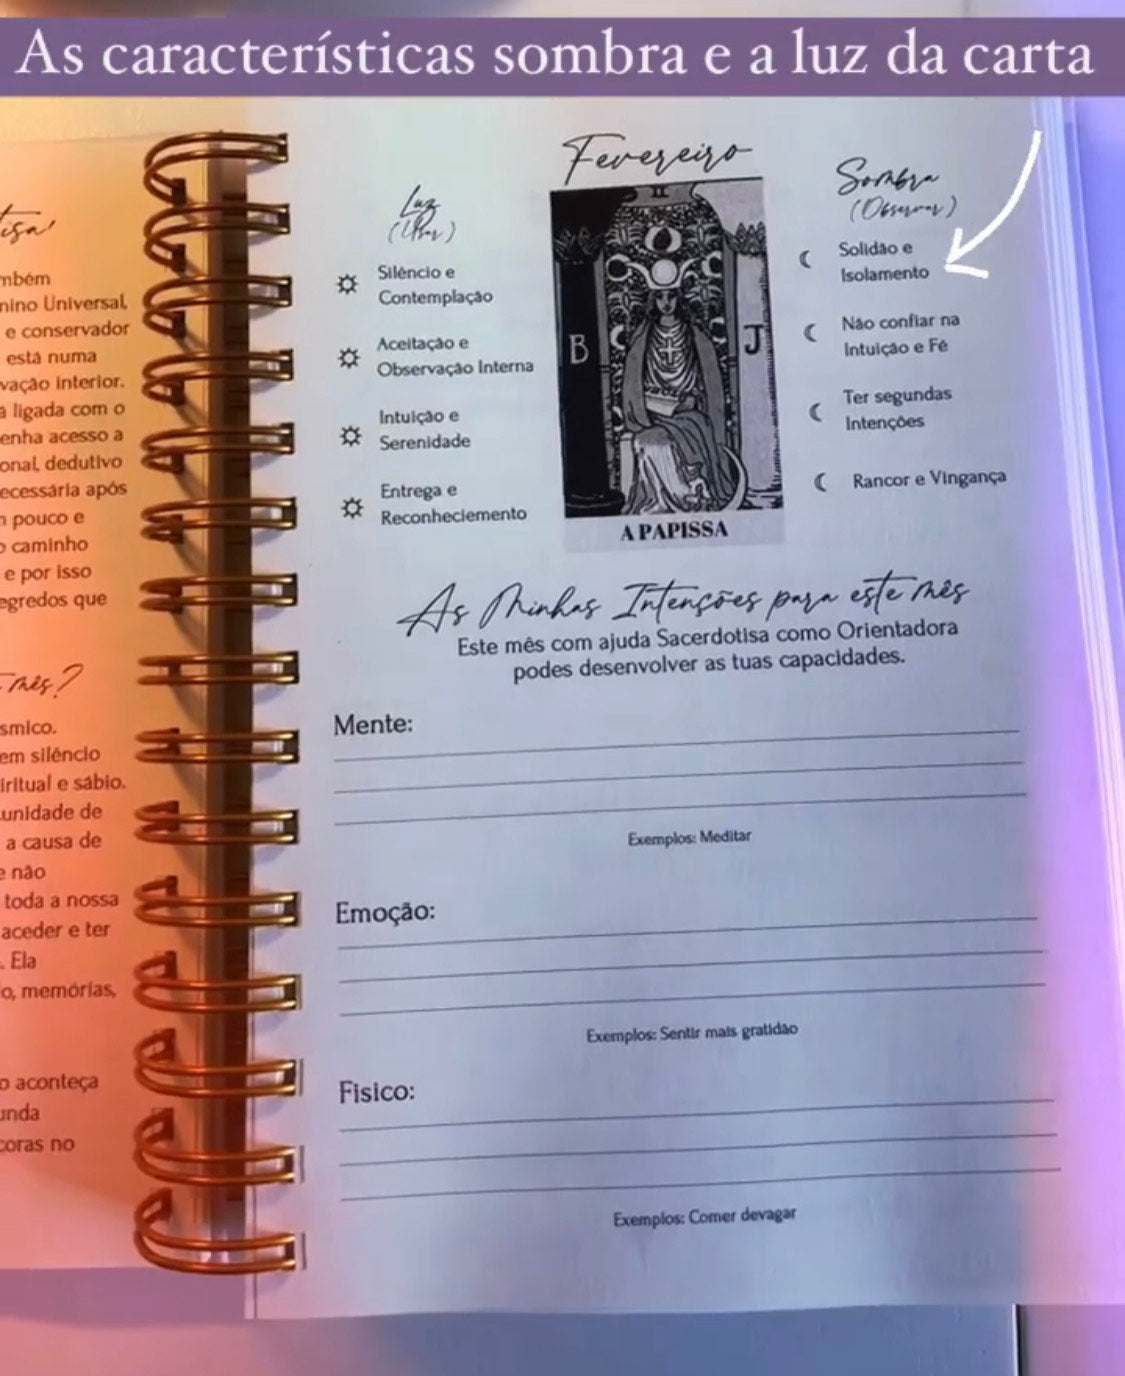 As características sombra e a luz da carta
mbém
nino Universal,
e conservador
está numa
vação interior.
ligada com o
enha acesso a
onal, dedutivo
ecessária após
pouco e
caminho
e por isso
egredos que
mês?
smico.
em silêncio
iritual e sábio.
unidade de
a causa de
e não
toda a nossa
aceder e ter
. Ela
o, memórias,
o aconteça
unda
coras no
Fevereiro
Luz
(Usar)
Silêncio e
Contemplação
Aceitação e
Observação Interna
Intuição e
Serenidade
Entrega e
Reconheciemento
II
B
J
A PAPISSA
Sombra
(Observar)
Solidão e
Isolamento
Não confiar na
Intuição e Fé
Ter segundas
Intenções
Rancor e Vingança
As Minhas Intenções para este mês
Este mês com ajuda Sacerdotisa como Orientadora
podes desenvolver as tuas capacidades.
Mente:
Exemplos: Meditar
Emoção:
Exemplos: Sentir mais gratidão
Fisico:
Exemplos: Comer devagar